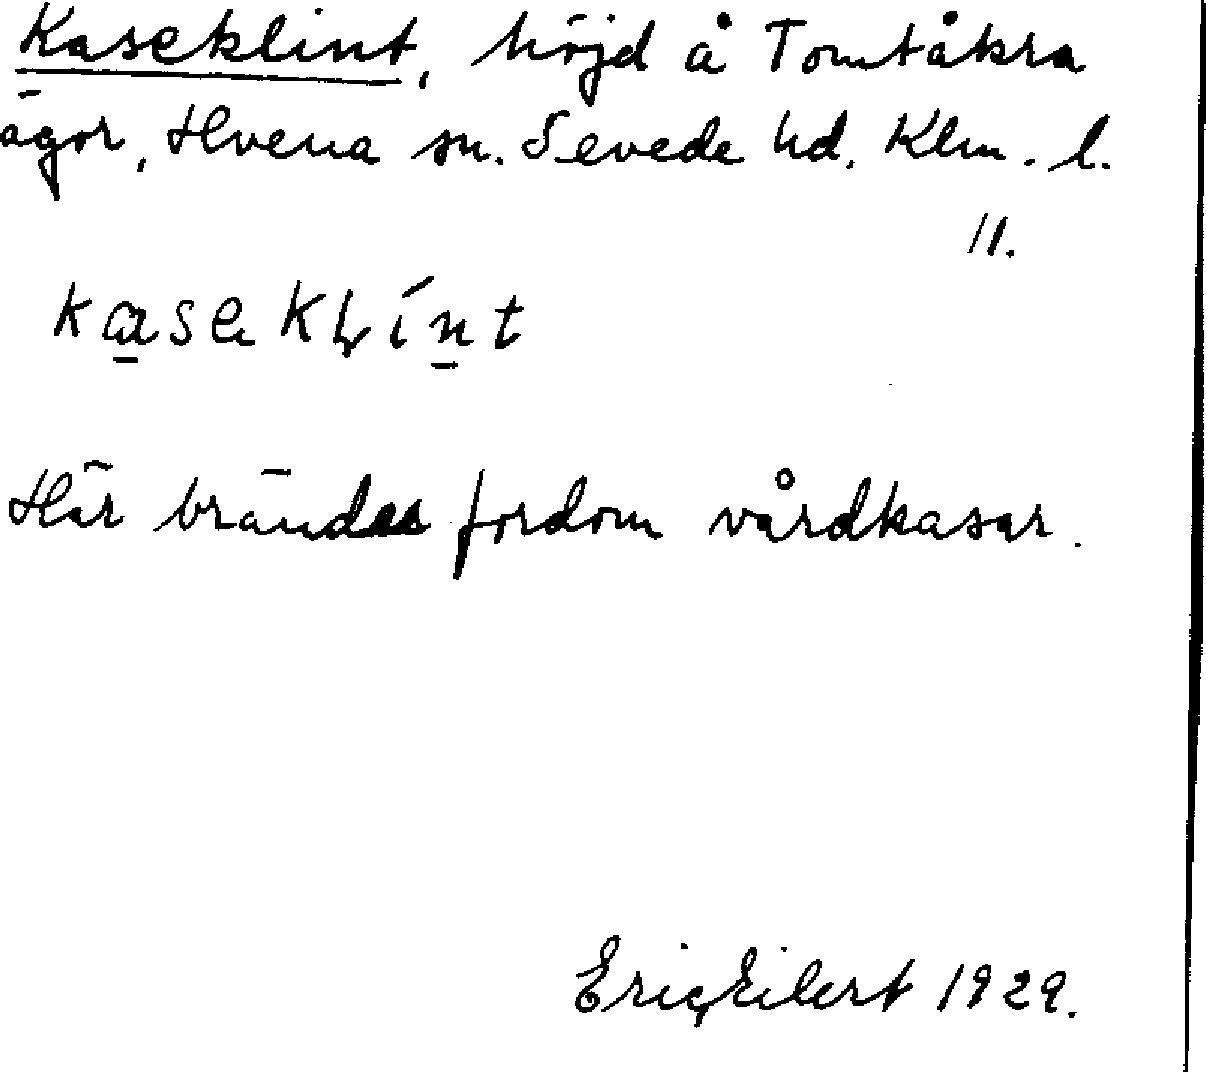 Kaseklint, höjd å Tomtåkra
ägor, Hvena sn. Sevede hd. Klm. l.
11.
Här brändes fordom vårdkasar.
Eric Eilert 1929.